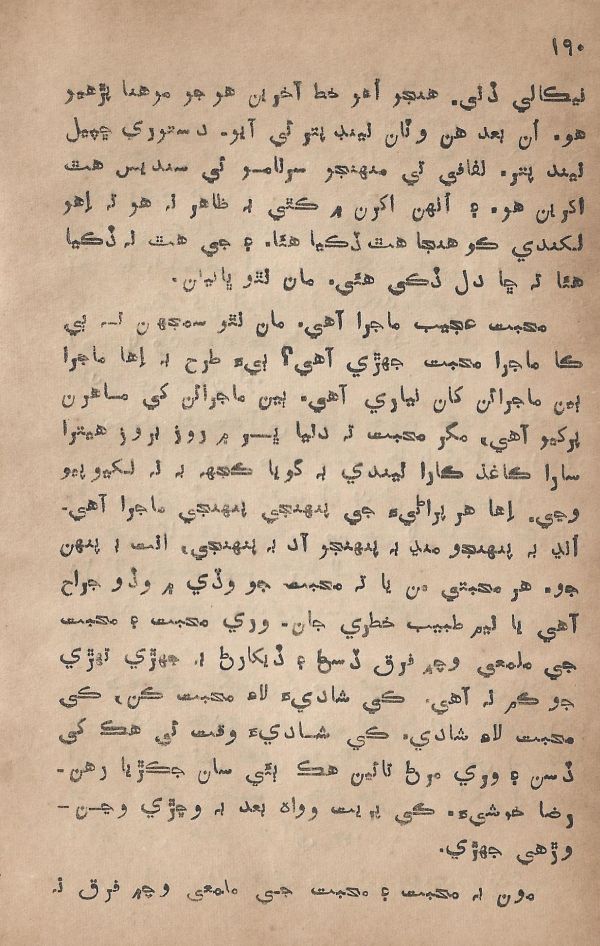 ١٩٠
نيڪالي ڏني. هنجو اُهو خط آخرين هو جو مرهندا پڙهيو
هو. اُن بعد هن وٽان ليند پتر ئي آيو. دستوري ڇپيل
ليند پتر. لفافي تي منهنجو سرنامو ئي سنديس هٿ
اکرين هو. ۽ اُنهن اکرن ۾ ڪٿي به ظاهر نه هو ته اِهو
لکندي ڪو هنجا هٿ ڏڪيا هئا. ۽ جي هٿ نه ڏڪيا
هئا ته ڇا دل ڏڪي هئي. مان نٿو ڀانيان.
محبت عجيب ماجرا آهي. مان نٿو سمجهان تہ ٻي
ڪا ماجرا محبت جهڙي آهي؟ ٻيءَ طرح به اِها ماجرا
ٻين ماجرائن کان نياري آهي. ٻين ماجرائن کي ماهرن
پرکيو آهي، مگر محبت ته دنيا ڀر ۾ روز بروز هيترا
سارا ڪاغذ ڪارا ٿيندي به گويا ڪجهه به نه لکيو پيو
وڃي. اِها هر پراڻيءَ جي پنهنجي پنهنجي ماجرا آهي.
اُن به پنهنجو منڍ به پنهنجو آد به پنهنجي، انت به پنهن
جو. هر محبتي من يا ته محبت جو وڏي ۾ وڏو جراح
آهي يا نيم طبيب خطري جان. وري محبت ۽ محبت
جي مامعي وچ۾ فرق ڏسڻ ۽ ڏيکارڻ به جهڙي تهڙي
جو ڪم نه آهي. ڪي شاديءَ لاءِ محبت ڪن، ڪي
محبت لاءِ شادي. ڪي شاديءَ وقت ئي هڪ ٻئي
ڏسن ۽ وري مرڻ تائين هڪ ٻئي سان جڪڙيا رهن-
رضا خوشيءَ. ڪي پريت وواه بعد به وڇڙي وڃن-
وڙهي جهڙي.
مون به محبت ۽ محبت جي مامعي وچ۾ فرق نه